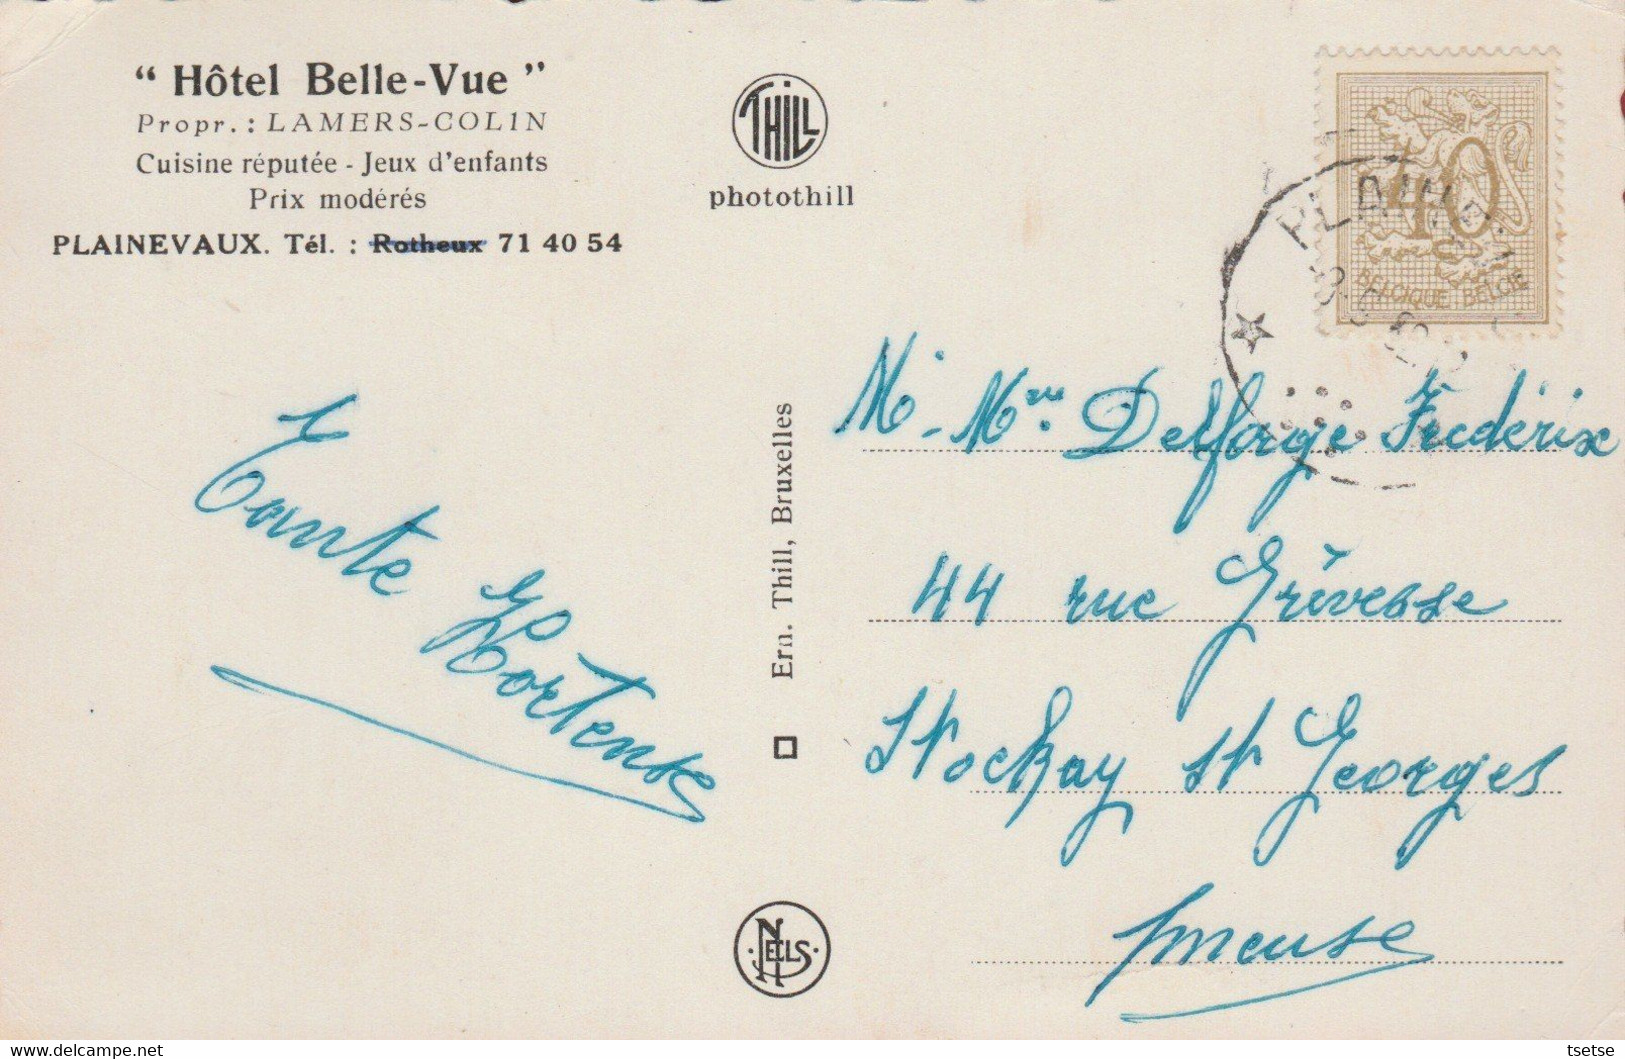 “ Hôtel Belle-Vue ”
Propr. : LAMERS-COLIN
Cuisine réputée - Jeux d'enfants
Prix modérés
PLAINEVAUX. Tél. : Rotheux 71 40 54
THILL
photothill
40
BELGIQUE BELGIE
Tante
Hortense
Ern. Thill, Bruxelles
NELS
M. Mme. Delforge Frederix
44 rue Grèvesse
Stockay St Georges
s/meuse
tsetse